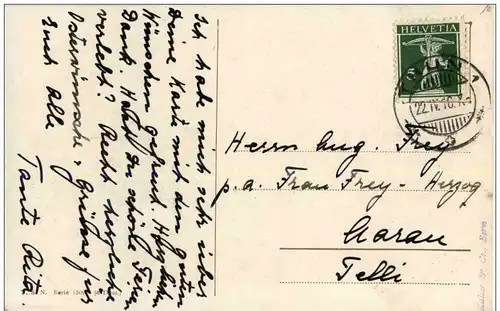 Ich habe mich sehr über
Deine Karte mit den guten
Wünschen gefreut. Herzlichen
Dank. Hast Du schöne Ferien
verlebt? Recht herzliche
Osterwünsche & Grüsse für
Euch alle
Tante Rita.
HELVETIA
5
22.IV.16.
Herrn Aug. Frey
p.a. Frau Frey-Herzog
Aarau
Telli
N. Serie